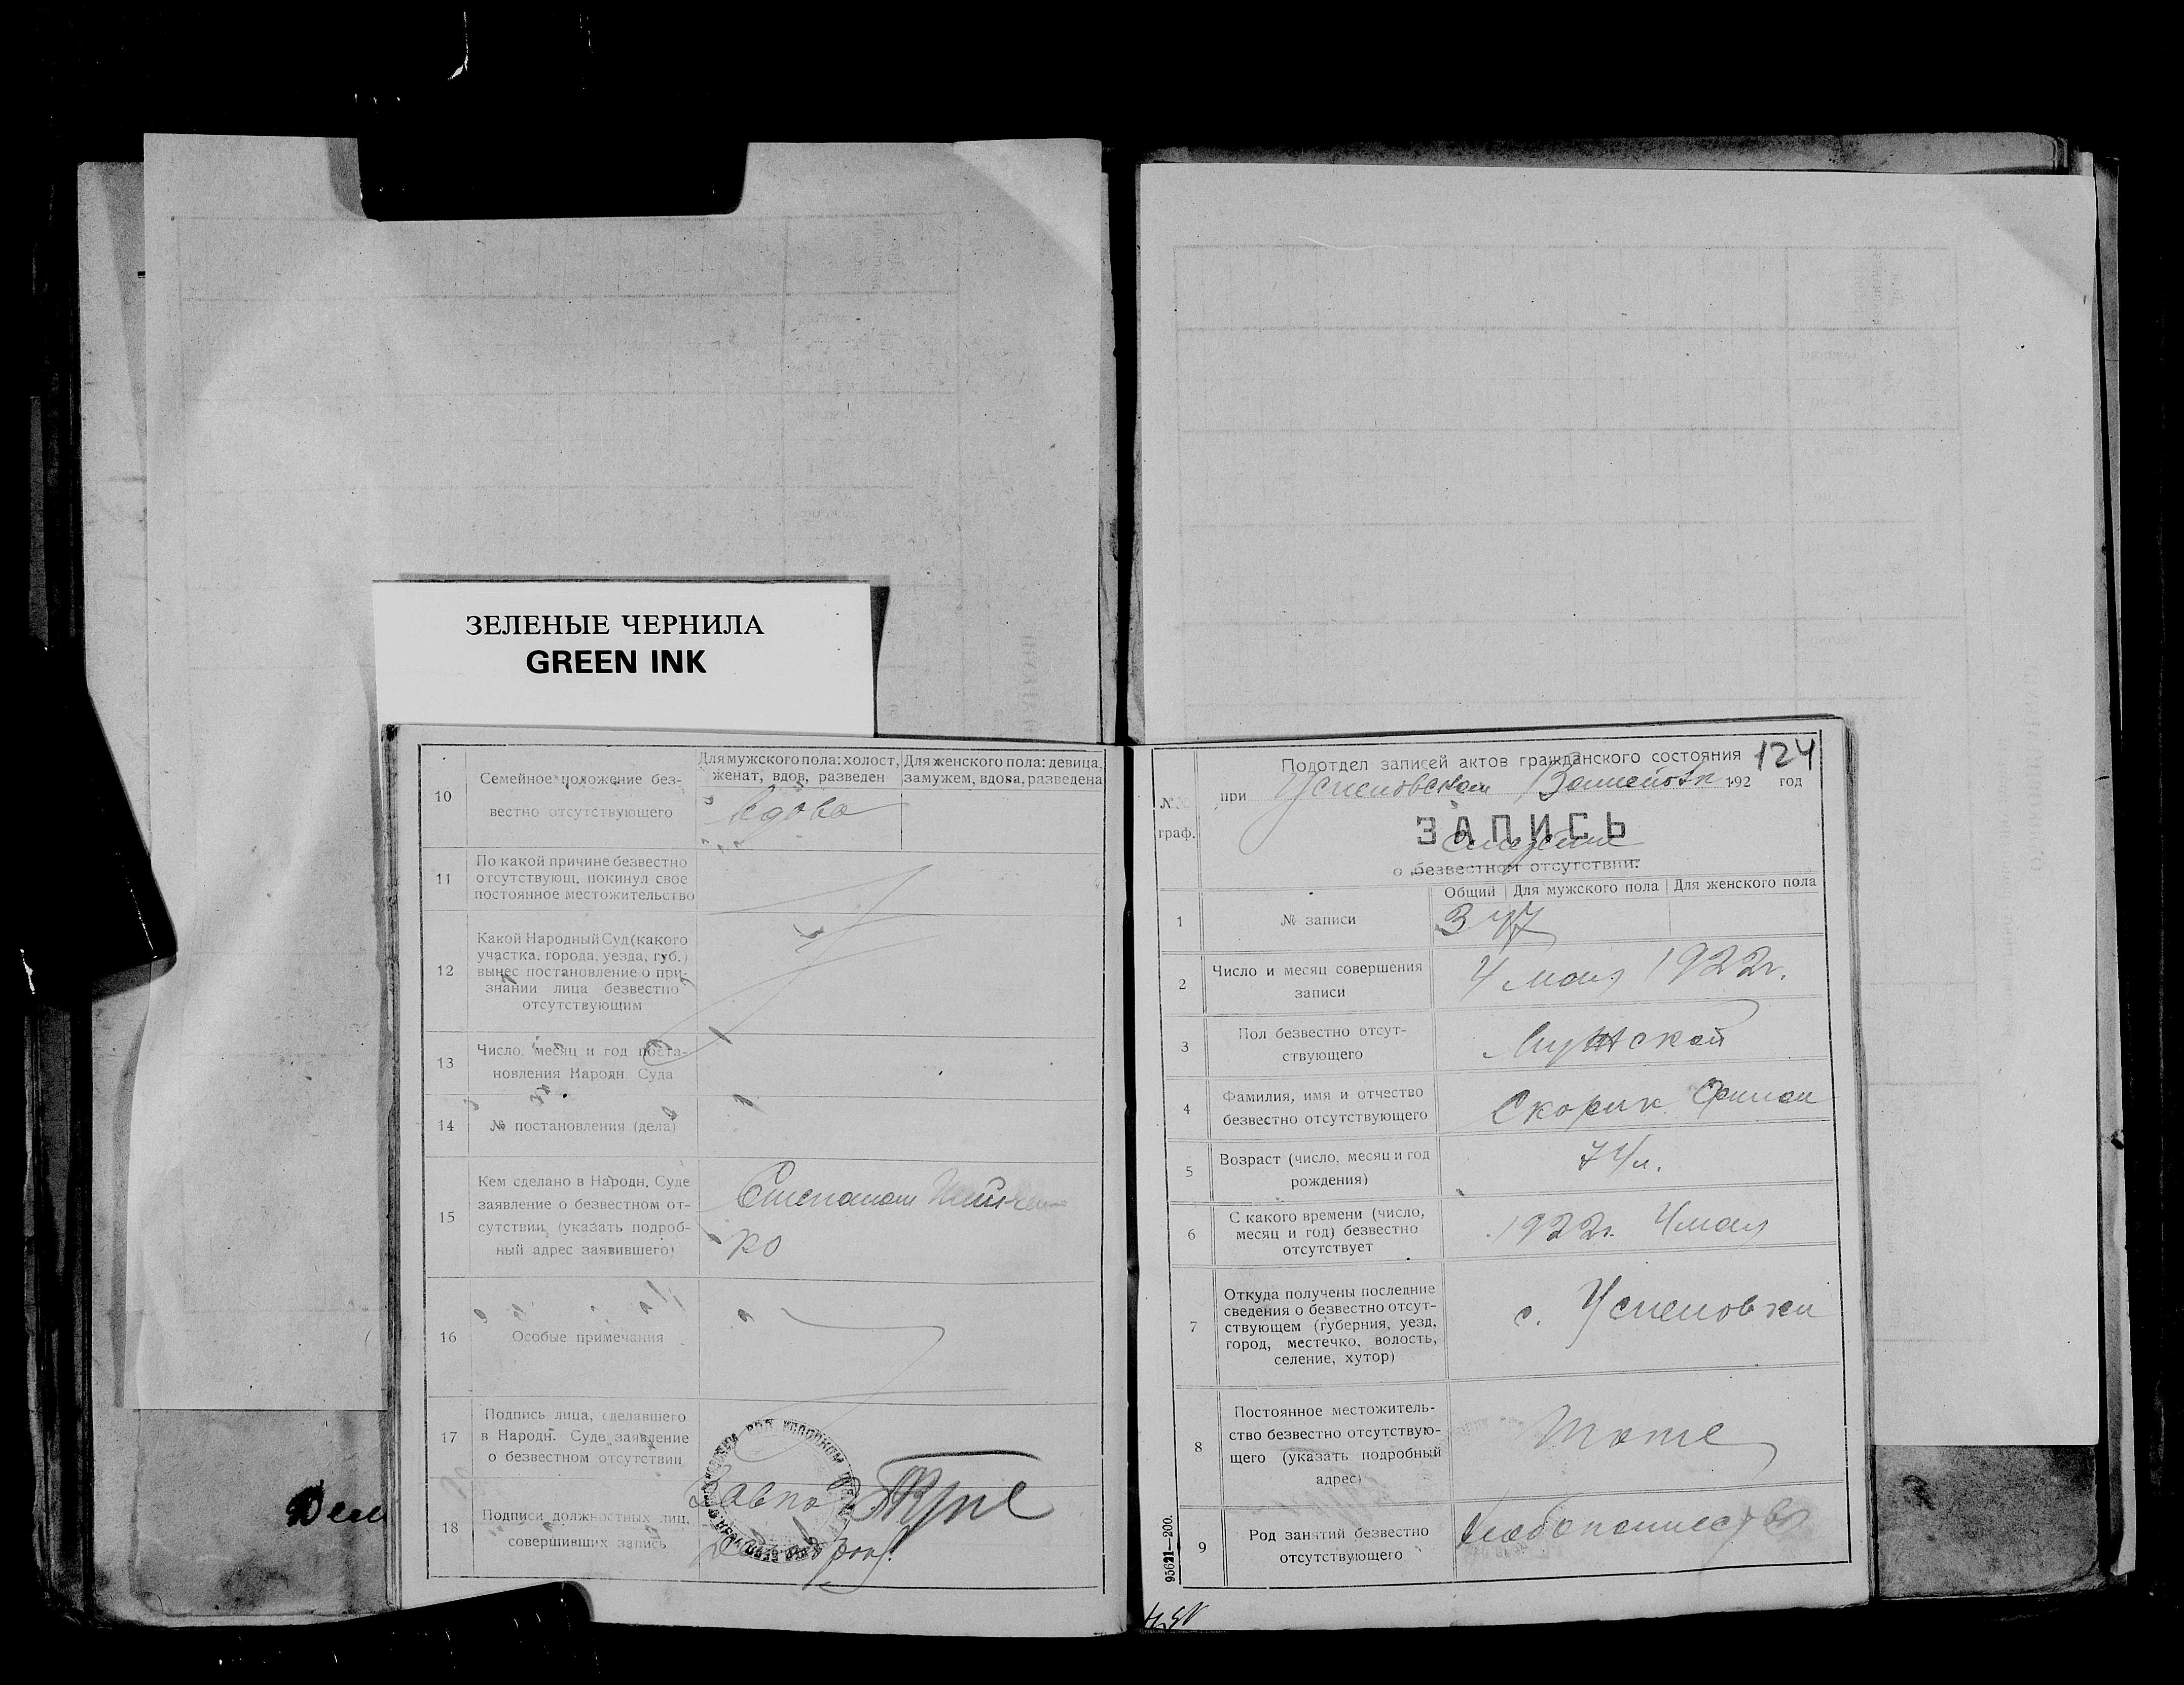 ЗЕЛЕНЫЕ ЧЕРНИЛА
GREEN INK
10
Семейное положение без-
вестно отсутствующего
Для мужского пола: холост,
женат, вдов, разведен
Для женского пола: девица,
замужем, вдова, разведена
Вдова
11
По какой причине безвестно
отсутствующ. покинул свое
постоянное местожительство
12
Какой Народный Суд (какого
участка, города, уезда, губ.)
вынес постановление о при-
знании лица безвестно
отсутствующим
13
Число, месяц и год поста-
новления Народн. Суда
14
№ постановления (дела)
15
Кем сделано в Народн. Суде
заявление о безвестном от-
сутствии (указать подроб-
ный адрес заявившего)
Степаном
ко
16
Особые примечания
17
Подпись лица, сделавшего
в Народн. Суде заявление
о безвестном отсутствии
18
Подписи должностных лиц,
совершивших запись
124
Подотдел записей актов гражданского состояния
при Успеновском 192 год
№№
граф.
ЗАПИСЬ
смерти
о безвестном отсутствии.
Общий
Для мужского пола
Для женского пола
1
№ записи
347
2
Число и месяц совершения
записи
4 мая 1922г.
3
Пол безвестно отсут-
ствующего
Мужской
4
Фамилия, имя и отчество
безвестно отсутствующего
Скорик
5
Возраст (число, месяц и год
рождения)
74 л.
6
С какого времени (число,
месяц и год) безвестно
отсутствует
1922г. 4 мая
7
Откуда получены последние
сведения о безвестно отсут-
ствующем (губерния, уезд,
город, местечко, волость,
селение, хутор)
с. Успеновки
8
Постоянное местожитель-
ство безвестно отсутствую-
щего (указать подробный
адрес)
тоже
9
Род занятий безвестно
отсутствующего
Хлебопашество
95621—200.